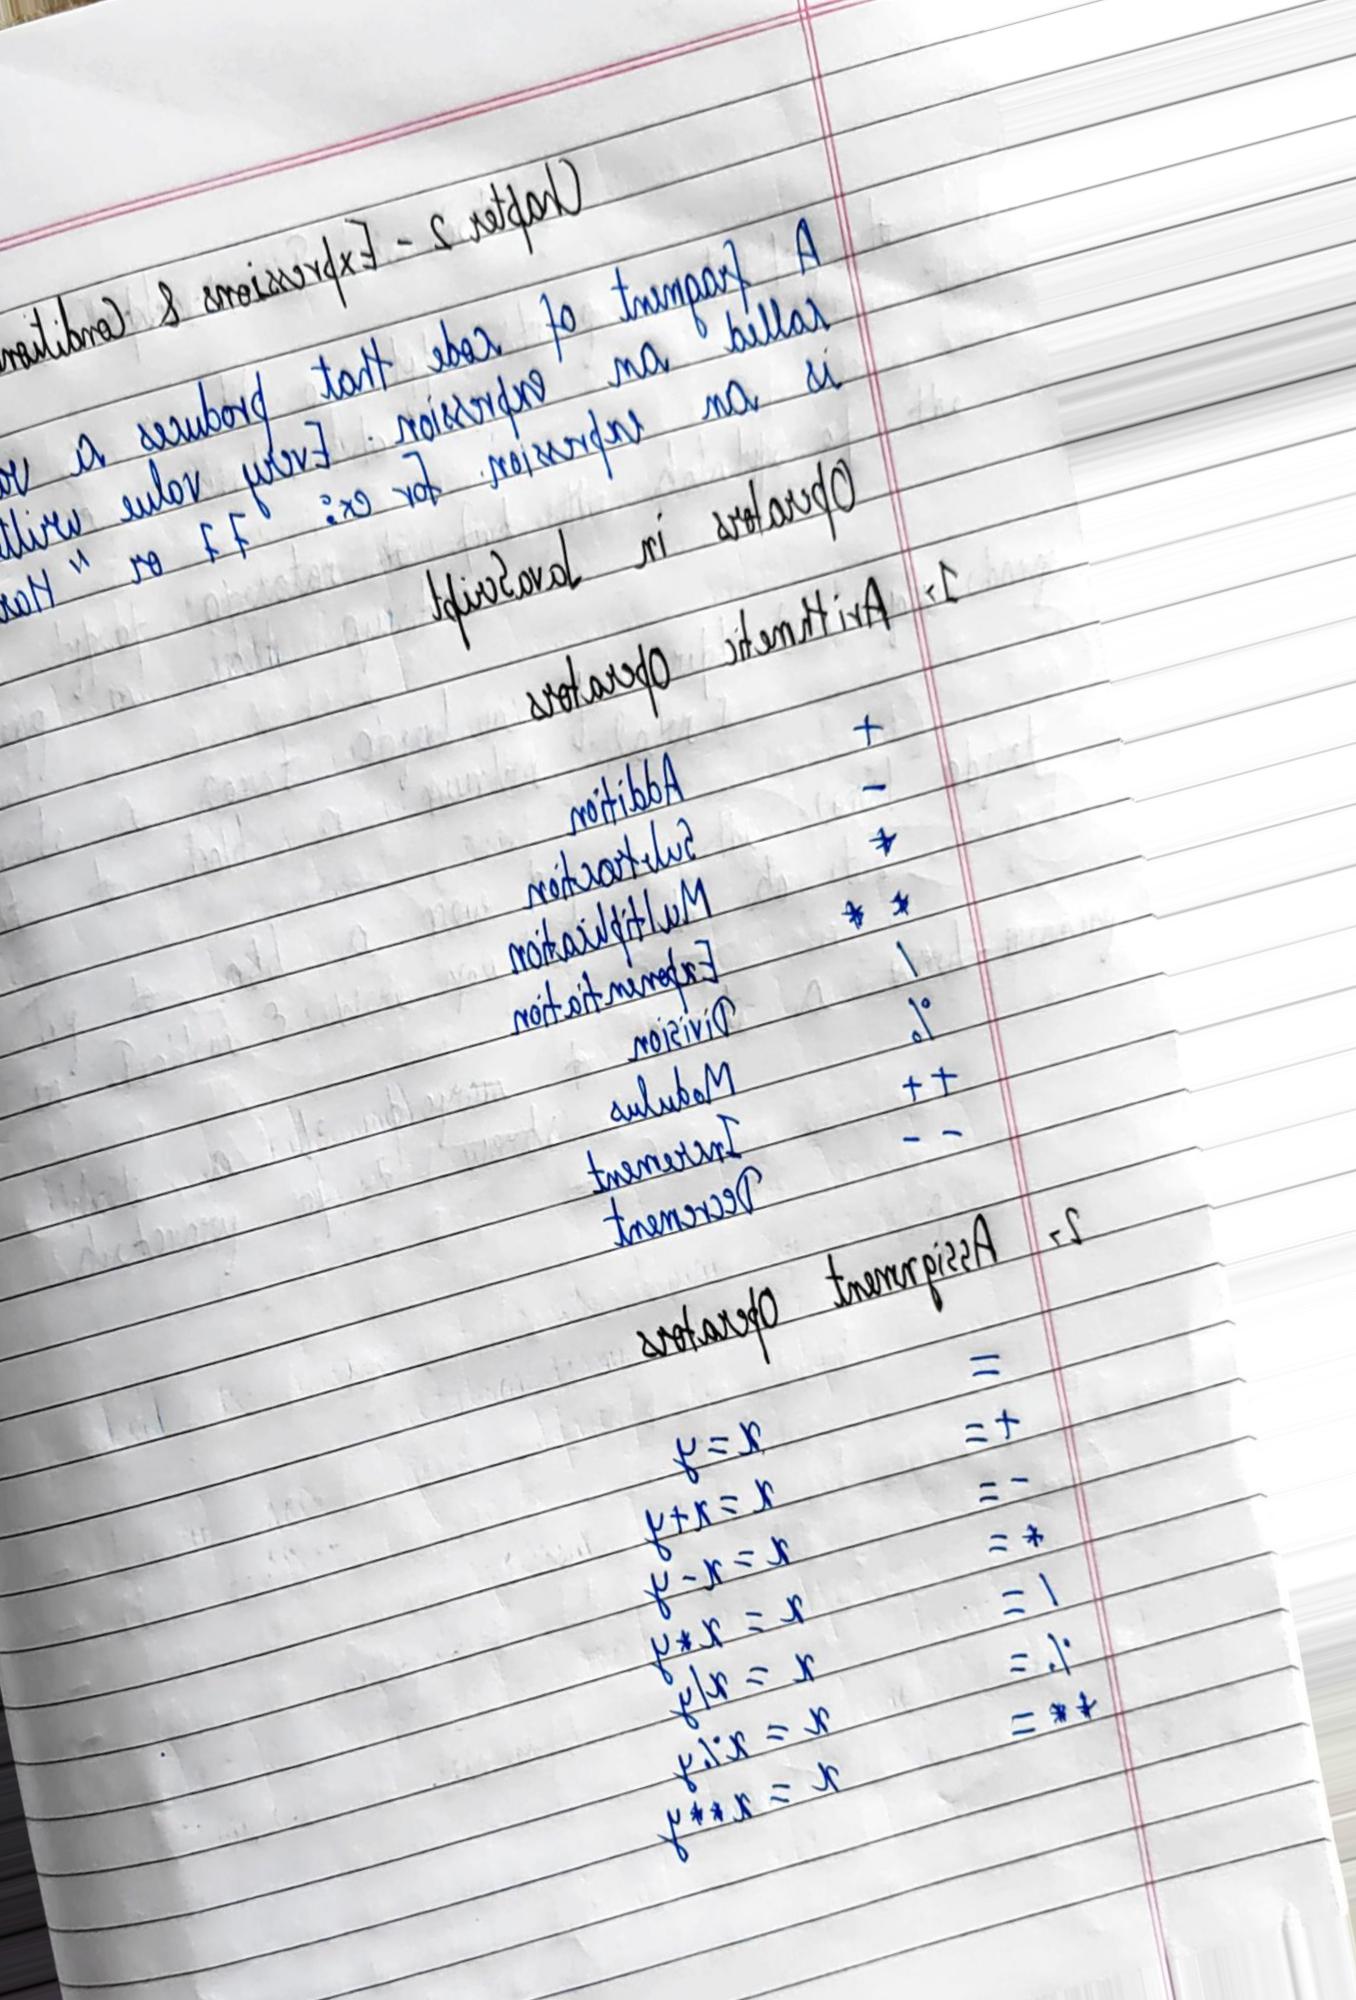 Chapter 2 - Expressions &
A fragment of code that produces a
called an expression. Every value
is an expression. for ex: 77 or "
Operators in JavaScript
1> Arithmetic Operators
+ Addition
- Subtraction
* Multiplication
** Exponentiation
/ Division
% Modulus
++ Increment
-- Decrement
2> Assignment Operators
= x = y
+= x = x+y
-= x = x-y
*= x = x*y
/= x = x/y
%= x = x%y
**= x = x**y